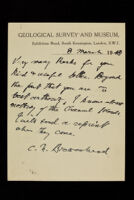 GEOLOGICAL SURVEY AND MUSEUM,
Exhibition Road, South Kensington, London, S.W.7.
8 March 19
Very many thanks for you
kind & useful letter. Beyond
the fact that you are in
I know
nothing of the Channel
I will send a reprint
when they come.
C. N. Bromehead